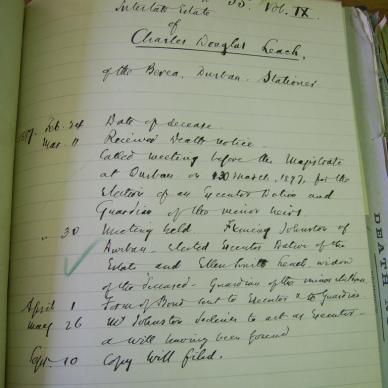 33. Vol. IX.
Intestate Estate
of
Charles Douglas Leach,
of the Berea, Durban. Stationer.
1897. Feb. 24 Date of decease.
Mar. 11 Received Death notice.
Called meeting before the Magistrate
at Durban on 30 March, 1897, for the
election of an Executor Dative and
Guardian of the minor heirs.
" 30 Meeting held. Fleming Johnston of
Durban elected Executor Dative of the
Estate and Ellen Leach widow
of the deceased Guardian of the minor children.
April 1 Form of Bond sent to Executor & to Guardian
May 26 Mr Johnston declines to act as Executor
a will having been found
Sept. 10 Copy Will filed.
DEATH